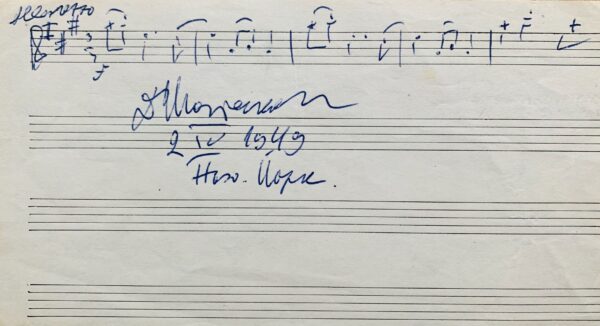 Allegretto
f
Д Шостакович
2 IV 1949
Нью-Йорк.